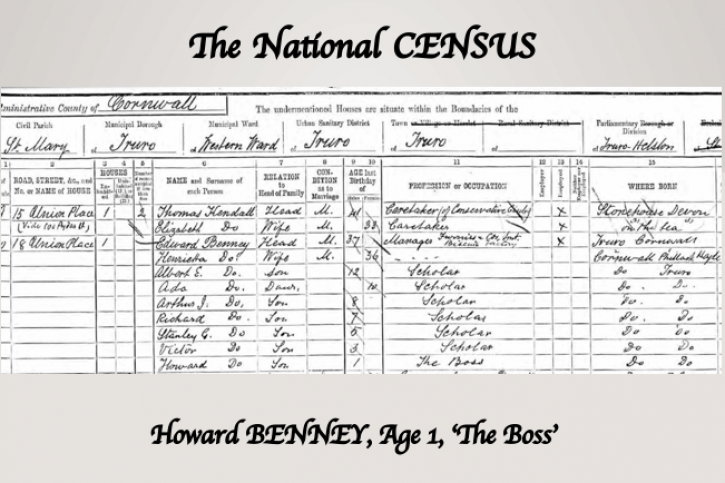 The National CENSUS
Administrative County of Cornwall
The undermentioned Houses are situate within the Boundaries of the
Civil Parish Municipal Borough Municipal Ward Urban Sanitary District Town or Village or Hamlet Rural Sanitary District Parliamentary Borough or Division
St. Mary of Truro of Western Ward of Truro of Truro of Truro-Helston
ROAD, STREET, &c., and No. or NAME of HOUSE HOUSES NAME and Surname of each Person RELATION to Head of Family CONDITION as to Marriage AGE last Birthday of PROFESSION or OCCUPATION Employer Employed WHERE BORN
15 Union Place 1 2 Thomas Kendall Head M. Caretaker of Conservative X Stonehouse Devon
Elizabeth Do Wife M. 33 Caretaker X on the sea
18 Union Place 1 Edward Benney Head M. 37 Manager X Truro Cornwall
Henrietta Do Wife M. 36 Cornwall Phillack Hayle
Albert E. Do. Son 12 Scholar Do Truro
Ada Do. Daur. 10 Scholar Do Do
Arthur J. Do. Son 8 Scholar Do. Do
Richard Do. Son 7 Scholar Do. Do
Stanley G. Do Son 5 Scholar Do Do
Victor Do Son 3 Scholar Do Do
Howard Do Son 1 The Boss Do Do
Howard BENNEY, Age 1, ‘The Boss’